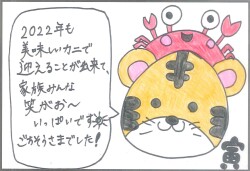 2022年も
美味しいカニで
迎えることが出来て、
家族みんな
笑がお〜
いっぱいです
ごちそうさまでした!
寅